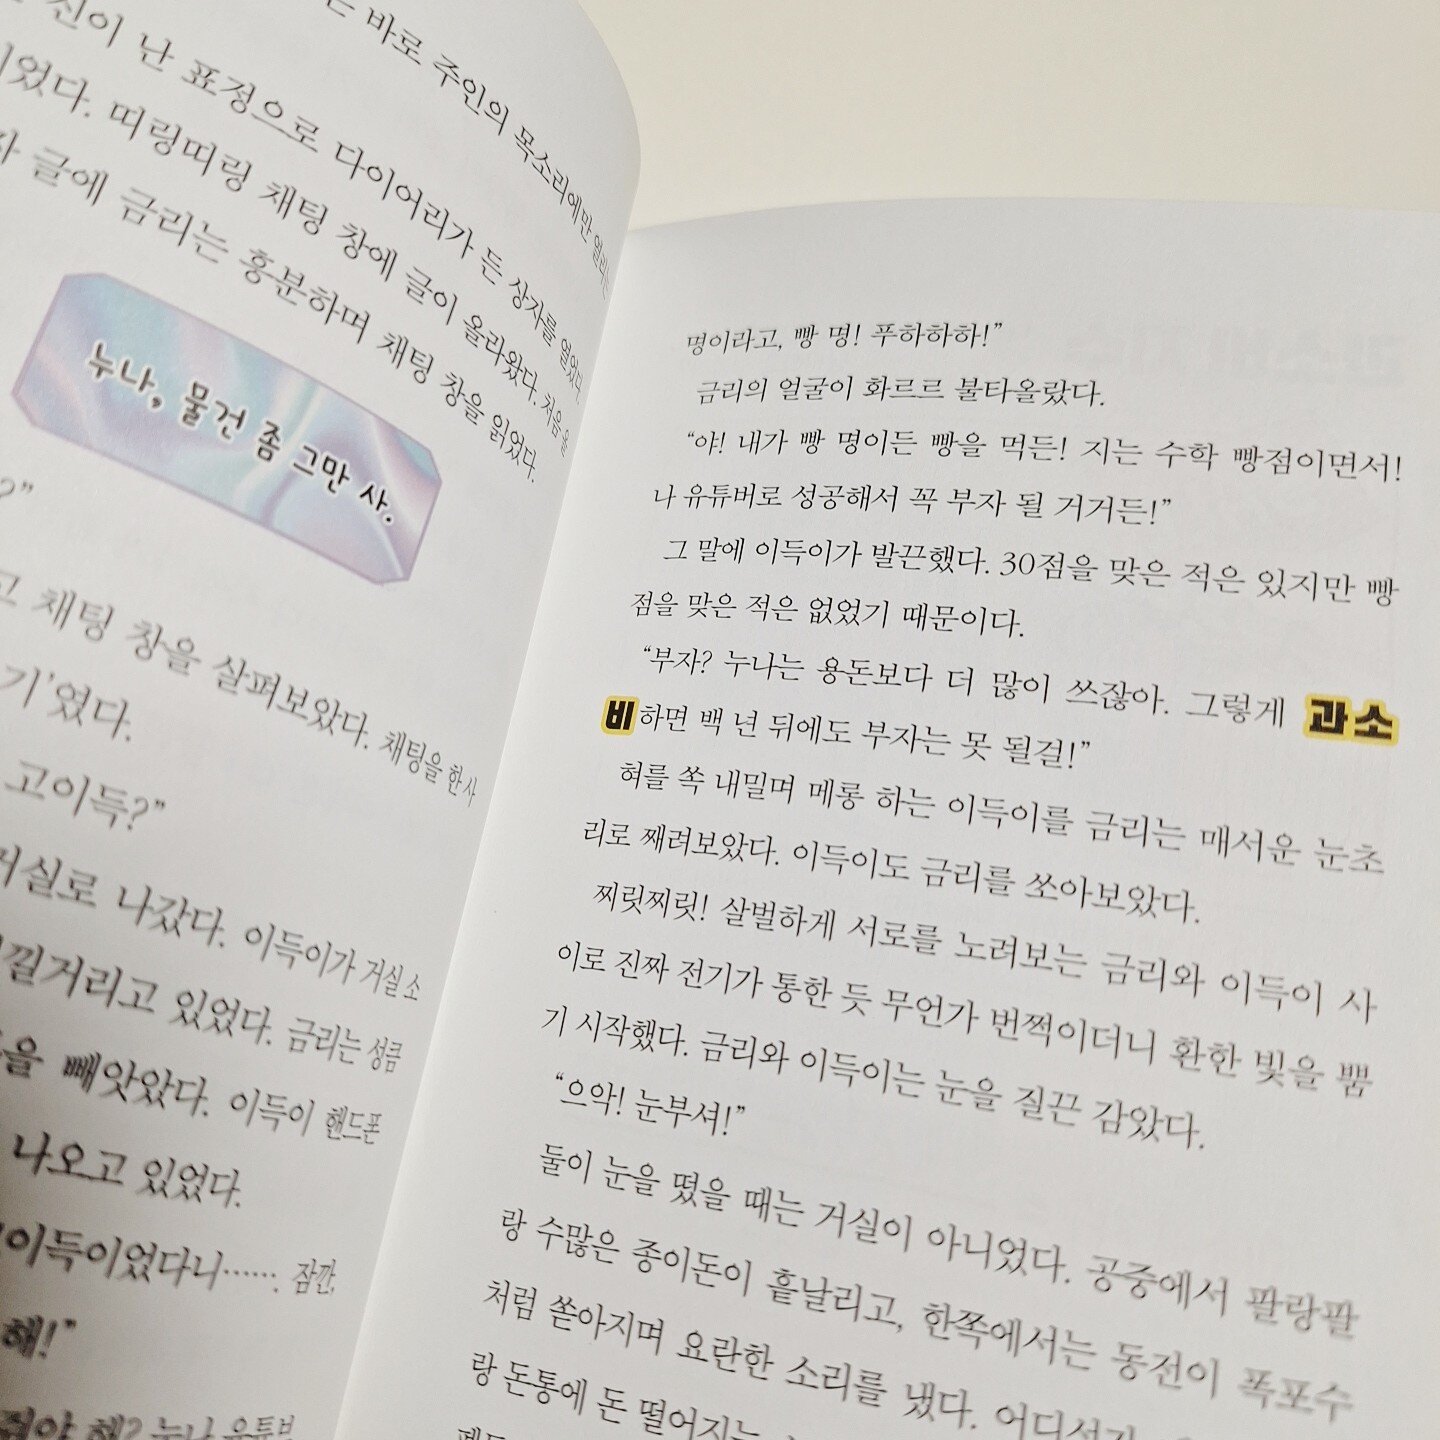 는 바로 주인의 목소리에만 열리는
신이 난 표정으로 다이어리가 든 상자를 열었다.
이었다. 띠링띠링 채팅 창에 글이 올라왔다. 처음 올
글에 금리는 흥분하며 채팅 창을 읽었다.
누나, 물건 좀 그만 사.
?”
고 채팅 창을 살펴보았다. 채팅을 한 사
기’였다.
고이득?”
거실로 나갔다. 이득이가 거실 소
낄거리고 있었다. 금리는 성큼
을 빼앗았다. 이득이 핸드폰
나오고 있었다.
이득이었다니……. 잠깐,
해!”
해? 누나 유튜브
명이라고, 빵 명! 푸하하하!”
금리의 얼굴이 화르르 불타올랐다.
“야! 내가 빵 명이든 빵을 먹든! 지는 수학 빵점이면서!
나 유튜버로 성공해서 꼭 부자 될 거거든!”
그 말에 이득이가 발끈했다. 30점을 맞은 적은 있지만 빵
점을 맞은 적은 없었기 때문이다.
“부자? 누나는 용돈보다 더 많이 쓰잖아. 그렇게 과소
비하면 백 년 뒤에도 부자는 못 될걸!”
혀를 쏙 내밀며 메롱 하는 이득이를 금리는 매서운 눈초
리로 째려보았다. 이득이도 금리를 쏘아보았다.
찌릿찌릿! 살벌하게 서로를 노려보는 금리와 이득이 사
이로 진짜 전기가 통한 듯 무언가 번쩍이더니 환한 빛을 뿜
기 시작했다. 금리와 이득이는 눈을 질끈 감았다.
“으악! 눈부셔!”
둘이 눈을 떴을 때는 거실이 아니었다. 공중에서 팔랑팔
랑 수많은 종이돈이 흩날리고, 한쪽에서는 동전이 폭포수
처럼 쏟아지며 요란한 소리를 냈다. 어디선가
랑 돈통에 돈 떨어지는